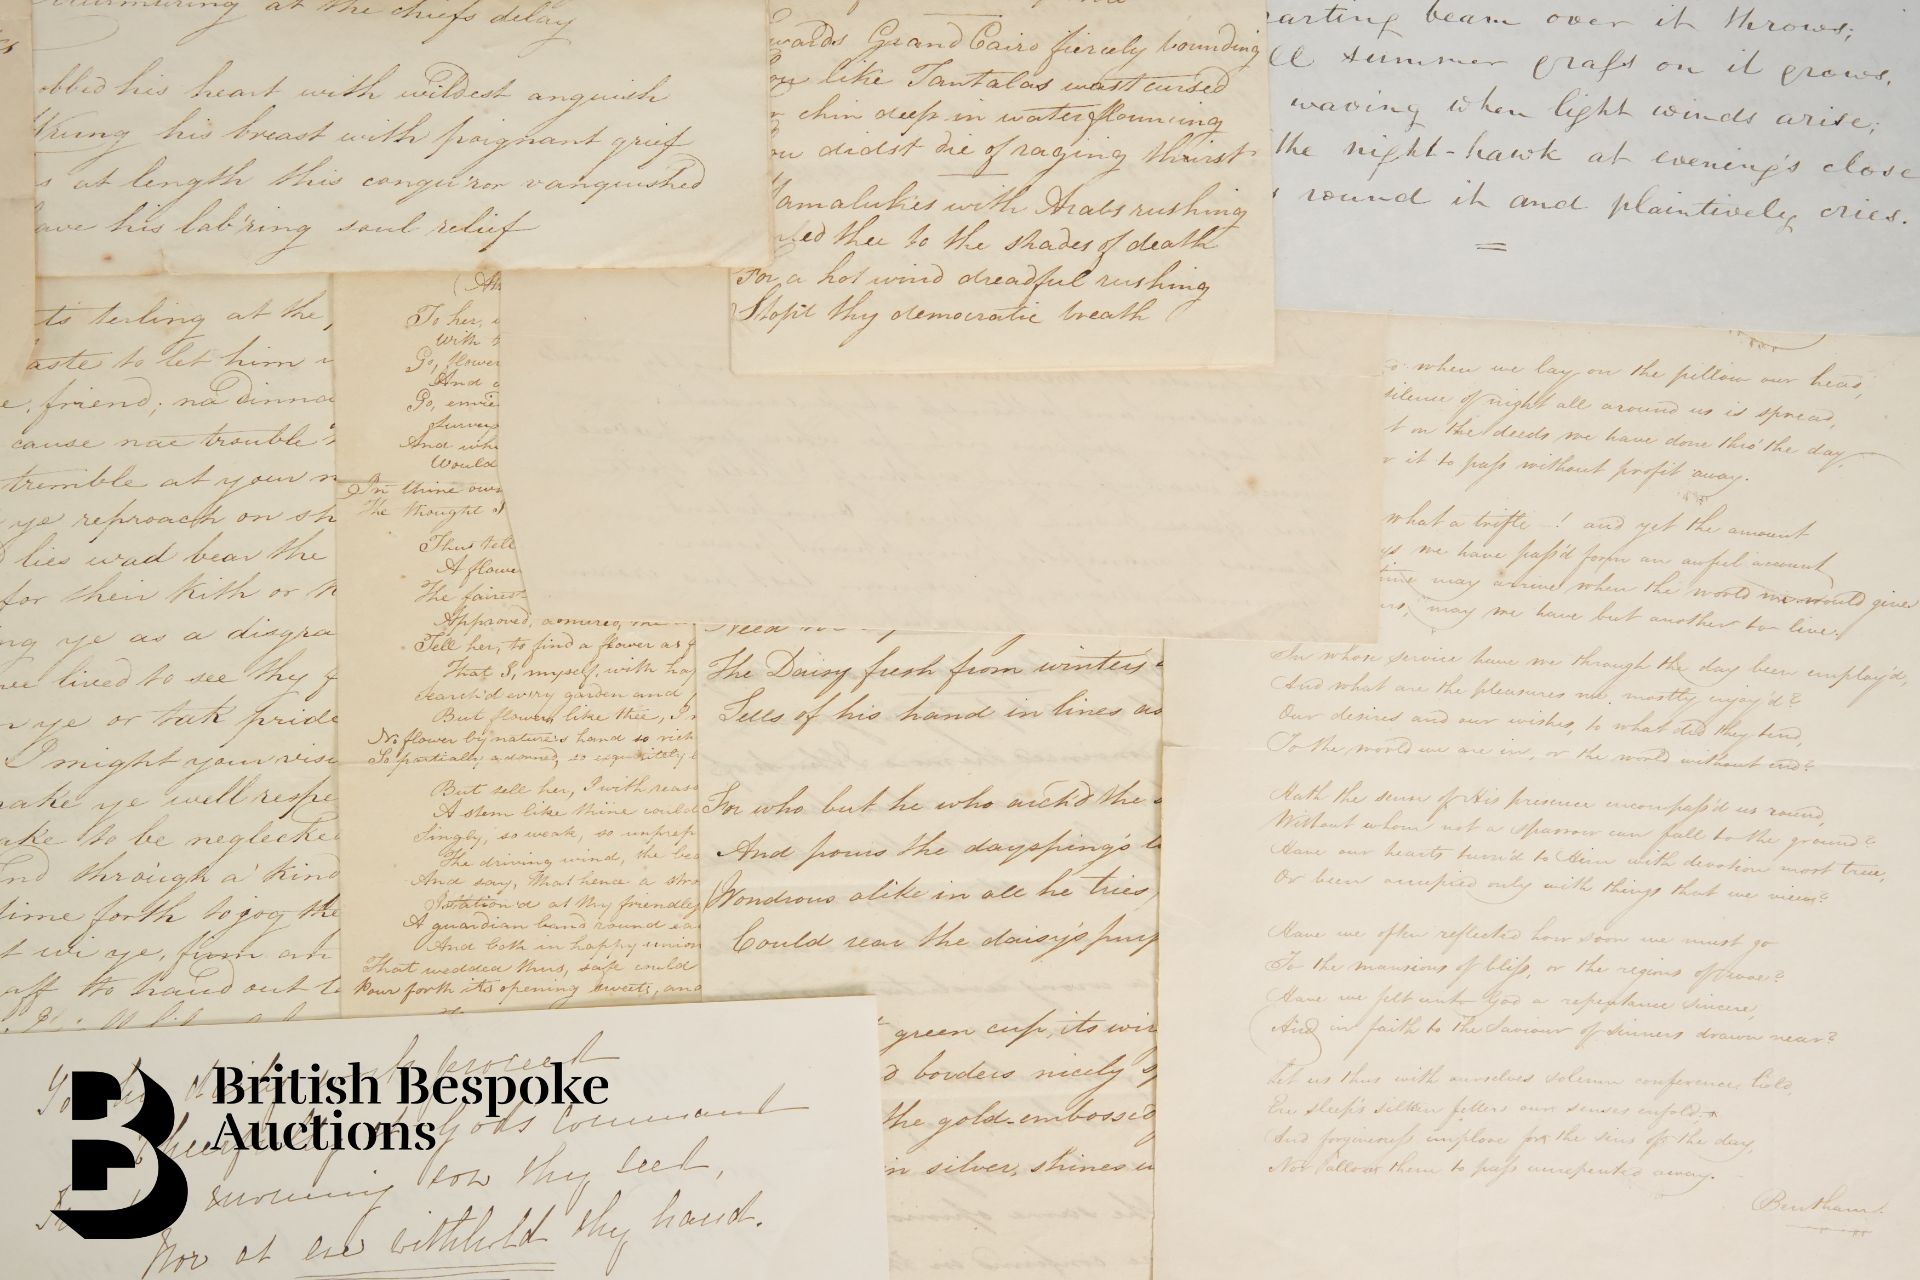 murmuring at the chiefs delay
his heart with wildest anguish
Wrung his breast with poignant grief
at length this conqu'ror vanquished
his lab'ring soul relief
Grand Cairo fiercely bounding
like Tantalas wast cursed
chin deep in water flouncing
didst die of raging thirst
Mamalukes with Arabs rushing
thee to the shades of death
For a hot wind dreadful rushing
Stop't thy democratic breath
beam over it throws;
summer grass on it grows,
waving when light winds arise;
the night-hawk at evening's close
round it and plaintively cries.
terling at the
to let him
friend; na dinna
cause nae trouble
tremble at your
ye reproach on
lies wad bear the
for their kith or
ye as a disgra
lived to see thy
ye or tak pride
I might your
ye well respe
to be neglecked
through a' kind
time forth to jog the
wi ye,
to haud out
To her,
With
Go, flower
And
Go, envie
Survey
And wh
Would
In thine own
The thought I
Thus tell
A flowe
The fairest
Approved, admired,
Tell her, to find a flower as
That I, myself, with ha
Search'd every garden and
But flower, like thee, I
No flower by nature's hand so rich
So partially adorned, so exquisitely
But tell her, I with reas
A stem like thine could
Singly, so weak, so unprep
The driving wind, the bea
And say, that hence a stro
Station'd at thy friendly
A guardian band round
And both in happy union
That wedded thus, safe could
Pour forth its opening sweets, and
Need
The Daisy fresh from winter's
Tells of his hand in lines as
For who but he who arch'd the
And pours the dayspring's
Wondrous alike in all he tries,
Could rear the daisy's purp
green cup, its wir
borders nicely
the gold-embossed
in silver, shines
when we lay on the pillow our head,
silence of night all around us is spread,
on the deeds we have done thro' the day,
it to pass without profit away.
what a trifle -! and yet the amount
we have pass'd form an awful account
time may arrive when the world we would give
may we have but another to live.
In whose service have we through the day been employ'd,
And what are the pleasures we mostly enjoy'd?
Our desires and our wishes, to what did they tend,
To the world we are in, or the world without end?
Hath the sense of His presence encompass'd us round,
Without whom not a sparrow can fall to the ground?
Have our hearts turn'd to Him with devotion most true,
Or been occupied only with things that we view?
Have we often reflected how soon we must go
To the mansions of bliss, or the regions of woe?
Have we felt unto God a repentance sincere,
And in faith to the Saviour of sinners drawn near?
Let us thus with ourselves solemn conference hold,
Ere sleep's silken fetters our senses enfold,
And forgiveness implore for the sins of the day,
Nor allow them to pass unrepented away.
Bentham.
proceed
Cheerfully at Gods command
morning sow thy seed,
Nor at eve withhold thy hand.
British Bespoke
Auctions